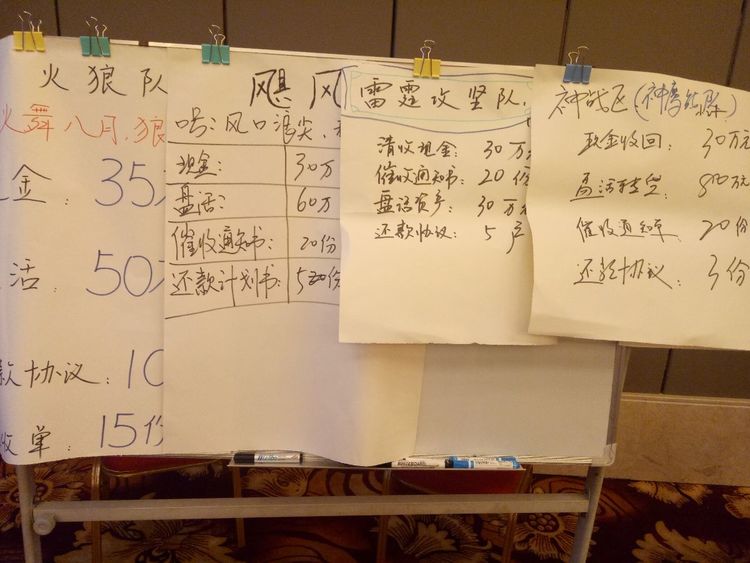 火狼队
火舞八月,狼
金: 35
活: 50
款协议: 10
收单: 15份
飓风
口号:风口浪尖,
现金: 30万
盘活: 60万
催收通知书: 20份
还款计划书: 5份
雷霆攻坚队
清收现金: 30万元
催收通知书: 20份
盘活资产: 30万元
还款协议: 5户
神战区(神鹰战队)
现金收回: 30万元
万元
催收通知单: 20份
还款协议: 3份